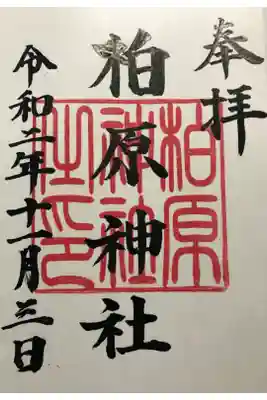 奉拝
柏原神社
柏原神社之印
令和二年十一月三日